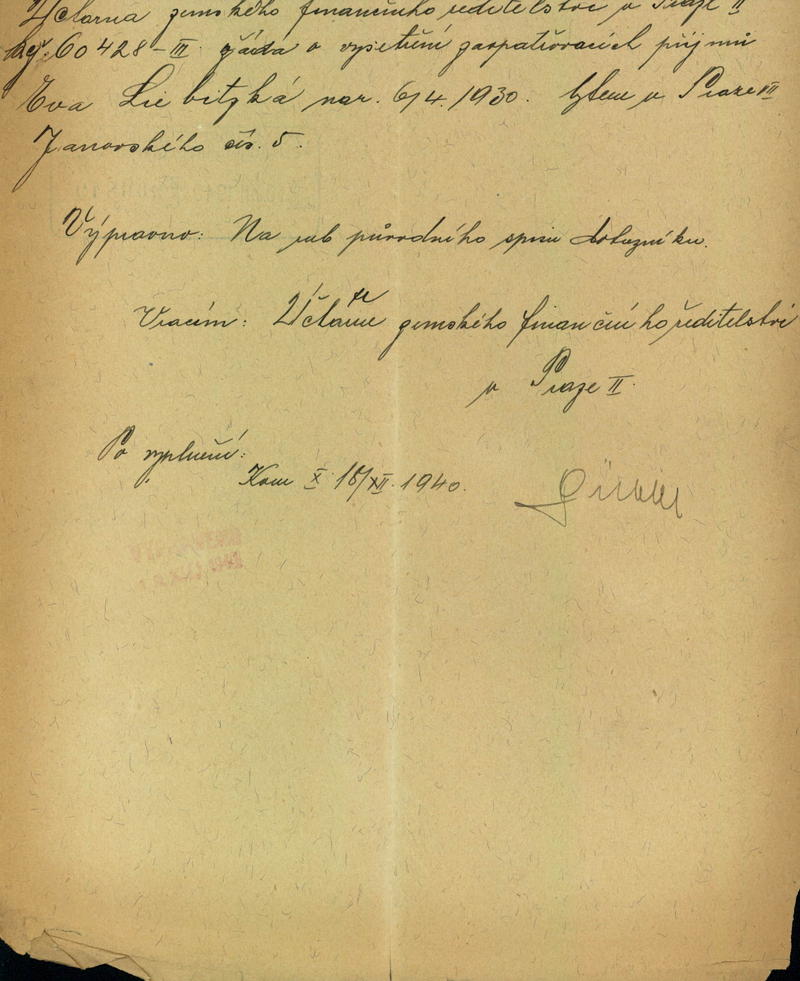 Učtárna zemského finančního ředitelství v Praze II
60428-III. žádá o vyšetření zaopatřovacích příjmů
Eva Liebitzká nar. 6/4. 1930. bytem v Praze VII
Janovského čís. 5.
Výpravno: Na rub původního spisu dotazníku.
Vracím: Účtárně zemského finančního ředitelství
v Praze II.
Po vyplnění:
Kom X. 18/XII. 1940.